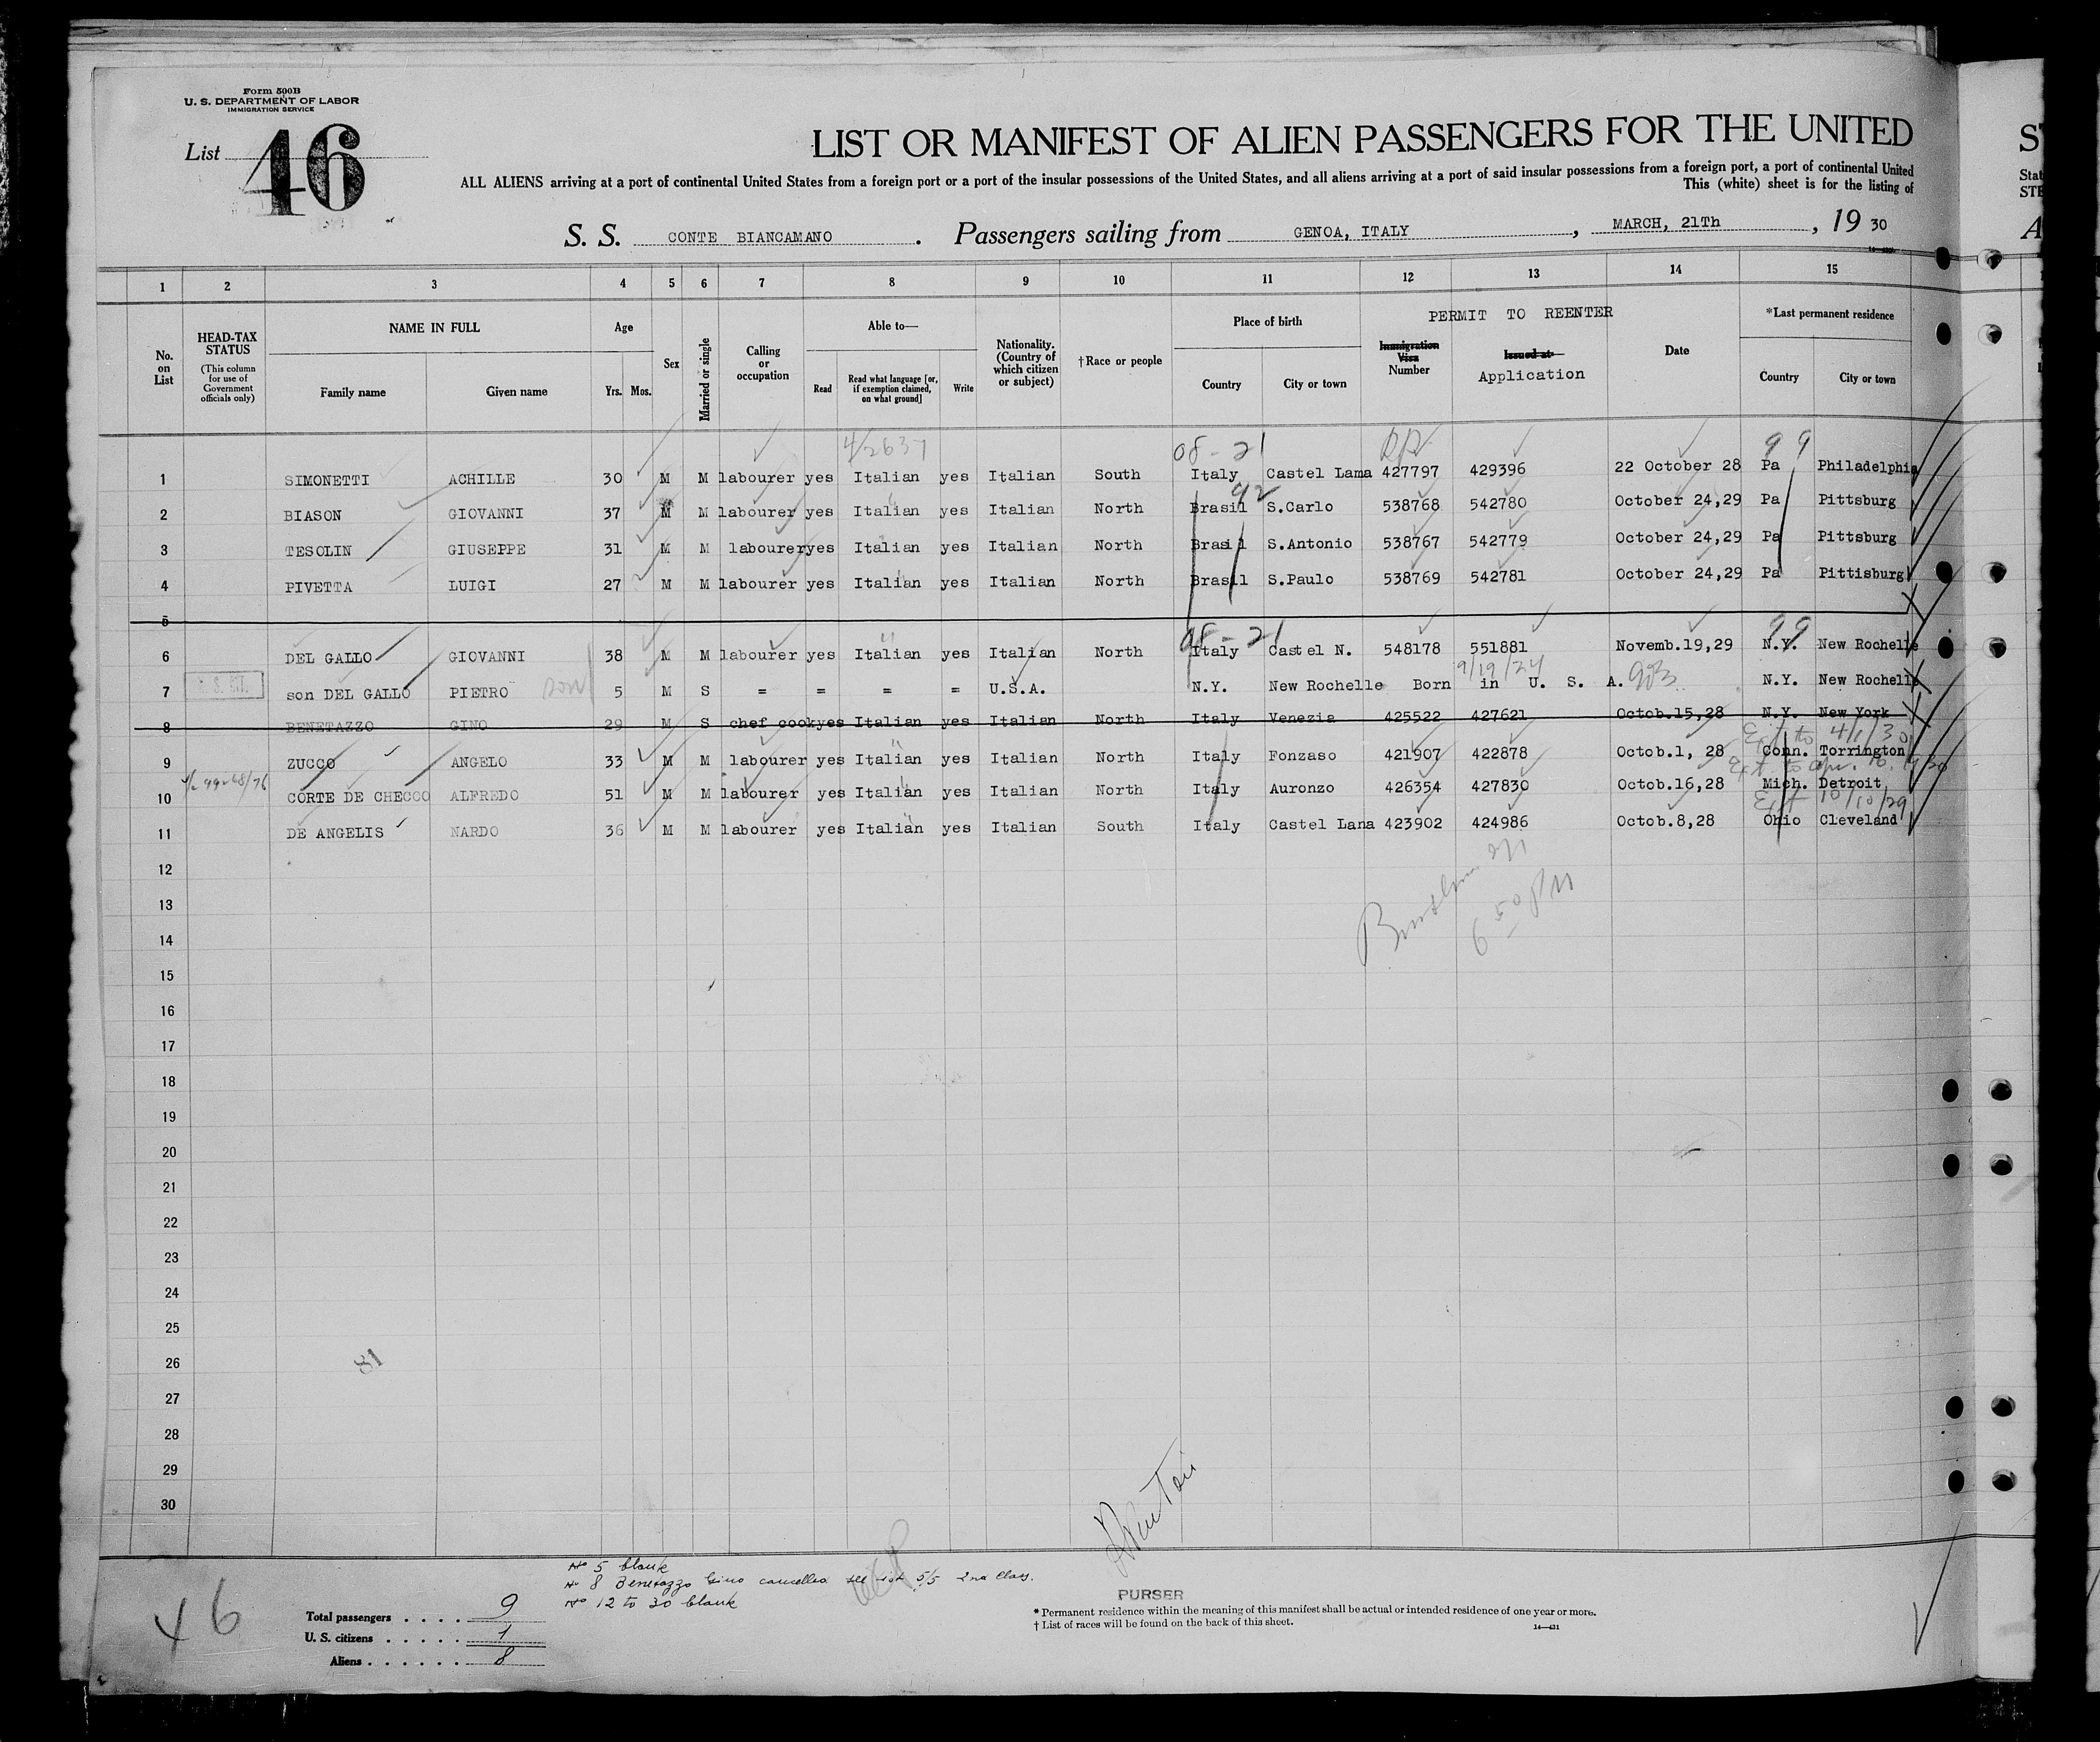 Form 500B
U. S. DEPARTMENT OF LABOR
IMMIGRATION SERVICE
List 46
LIST OR MANIFEST OF ALIEN PASSENGERS FOR THE UNITED
ALL ALIENS arriving at a port of continental United States from a foreign port or a port of the insular possessions of the United States, and all aliens arriving at a port of said insular possessions from a foreign port, a port of continental United
This (white) sheet is for the listing of
S. S. CONTE BIANCAMANO . Passengers sailing from GENOA, ITALY , MARCH, 21Th , 19 30
1 2 3 4 5 6 7 8 9 10 11 12 13 14 15
No. on List
HEAD-TAX STATUS
(This column for use of Government officials only)
NAME IN FULL
Family name Given name
Age
Yrs. Mos.
Sex
Married or single
Calling or occupation
Able to—
Read Read what language [or, if exemption claimed, on what ground] Write
Nationality. (Country of which citizen or subject)
†Race or people
Place of birth
Country City or town
PERMIT TO REENTER
Immigration Visa Number
Issued at
Application
Date
*Last permanent residence
Country City or town
08-21 99
1 SIMONETTI ACHILLE 30 M M labourer yes Italian yes Italian South Italy Castel Lama 427797 429396 22 October 28 Pa Philadelphia
92
2 BIASON GIOVANNI 37 M M labourer yes Italian yes Italian North Brasil S.Carlo 538768 542780 October 24,29 Pa Pittsburg
3 TESOLIN GIUSEPPE 31 M M labourer yes Italian yes Italian North Brasil S.Antonio 538767 542779 October 24,29 Pa Pittsburg
4 PIVETTA LUIGI 27 M M labourer yes Italian yes Italian North Brasil S.Paulo 538769 542781 October 24,29 Pa Pittisburg
5
99
6 DEL GALLO GIOVANNI 38 M M labourer yes Italian yes Italian North Italy Castel N. 548178 551881 Novemb.19,29 N.Y. New Rochelle
9/19/24
7 son DEL GALLO PIETRO son 5 M S = = = = U.S.A. N.Y. New Rochelle Born in U. S. A. N.Y. New Rochelle
8 BENETAZZO GINO 29 M S chef cook yes Italian yes Italian North Italy Venezia 425522 427621 Octob.15,28 N.Y. New York
Ext to 4/1/30
9 ZUCCO ANGELO 33 M M labourer yes Italian yes Italian North Italy Fonzaso 421907 422878 Octob.1, 28 Conn. Torrington
10 CORTE DE CHECCO ALFREDO 51 M M labourer yes Italian yes Italian North Italy Auronzo 426354 427830 Octob.16,28 Mich. Detroit
Ext 10/10/29
11 DE ANGELIS NARDO 36 M M labourer yes Italian yes Italian South Italy Castel Lana 423902 424986 Octob.8,28 Ohio Cleveland
12
13
6 50 PM
14
15
16
17
18
19
20
21
22
23
24
25
26
81
27
28
29
30
No 5 blank
No 8 Benetazzo Gino cancelled see list 5/5 2nd Class.
No 12 to 30 blank
46
Total passengers . . . . 9
U. S. citizens . . . . . 1
Aliens . . . . . . 8
PURSER
* Permanent residence within the meaning of this manifest shall be actual or intended residence of one year or more.
† List of races will be found on the back of this sheet.
14—431